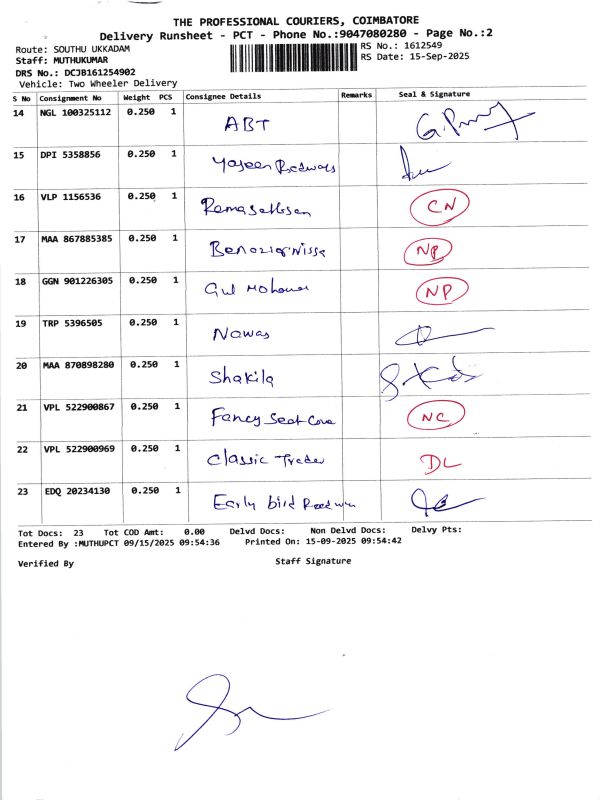 THE PROFESSIONAL COURIERS, COIMBATORE
Delivery Runsheet - PCT - Phone No.:9047080280 - Page No.:2
Route: SOUTHU UKKADAM
RS No.: 1612549
Staff: MUTHUKUMAR
RS Date: 15-Sep-2025
DRS No.: DCJB161254902
Vehicle: Two Wheeler Delivery
S No Consignment No Weight PCS Consignee Details Remarks Seal & Signature
14 NGL 100325112 0.250 1 ABT
15 DPI 5358856 0.250 1
16 VLP 1156536 0.250 1 CN
17 MAA 867885385 0.250 1 NP
18 GGN 901226305 0.250 1 Gul NP
19 TRP 5396505 0.250 1 Nawas
20 MAA 870898280 0.250 1 Shakila
21 VPL 522900867 0.250 1 Fancy Seat Cove NC
22 VPL 522900969 0.250 1 Classic Trader DL
23 EDQ 20234130 0.250 1 Early bird
Tot Docs: 23 Tot COD Amt: 0.00 Delvd Docs: Non Delvd Docs: Delvy Pts:
Entered By :MUTHUPCT 09/15/2025 09:54:36 Printed On: 15-09-2025 09:54:42
Verified By Staff Signature